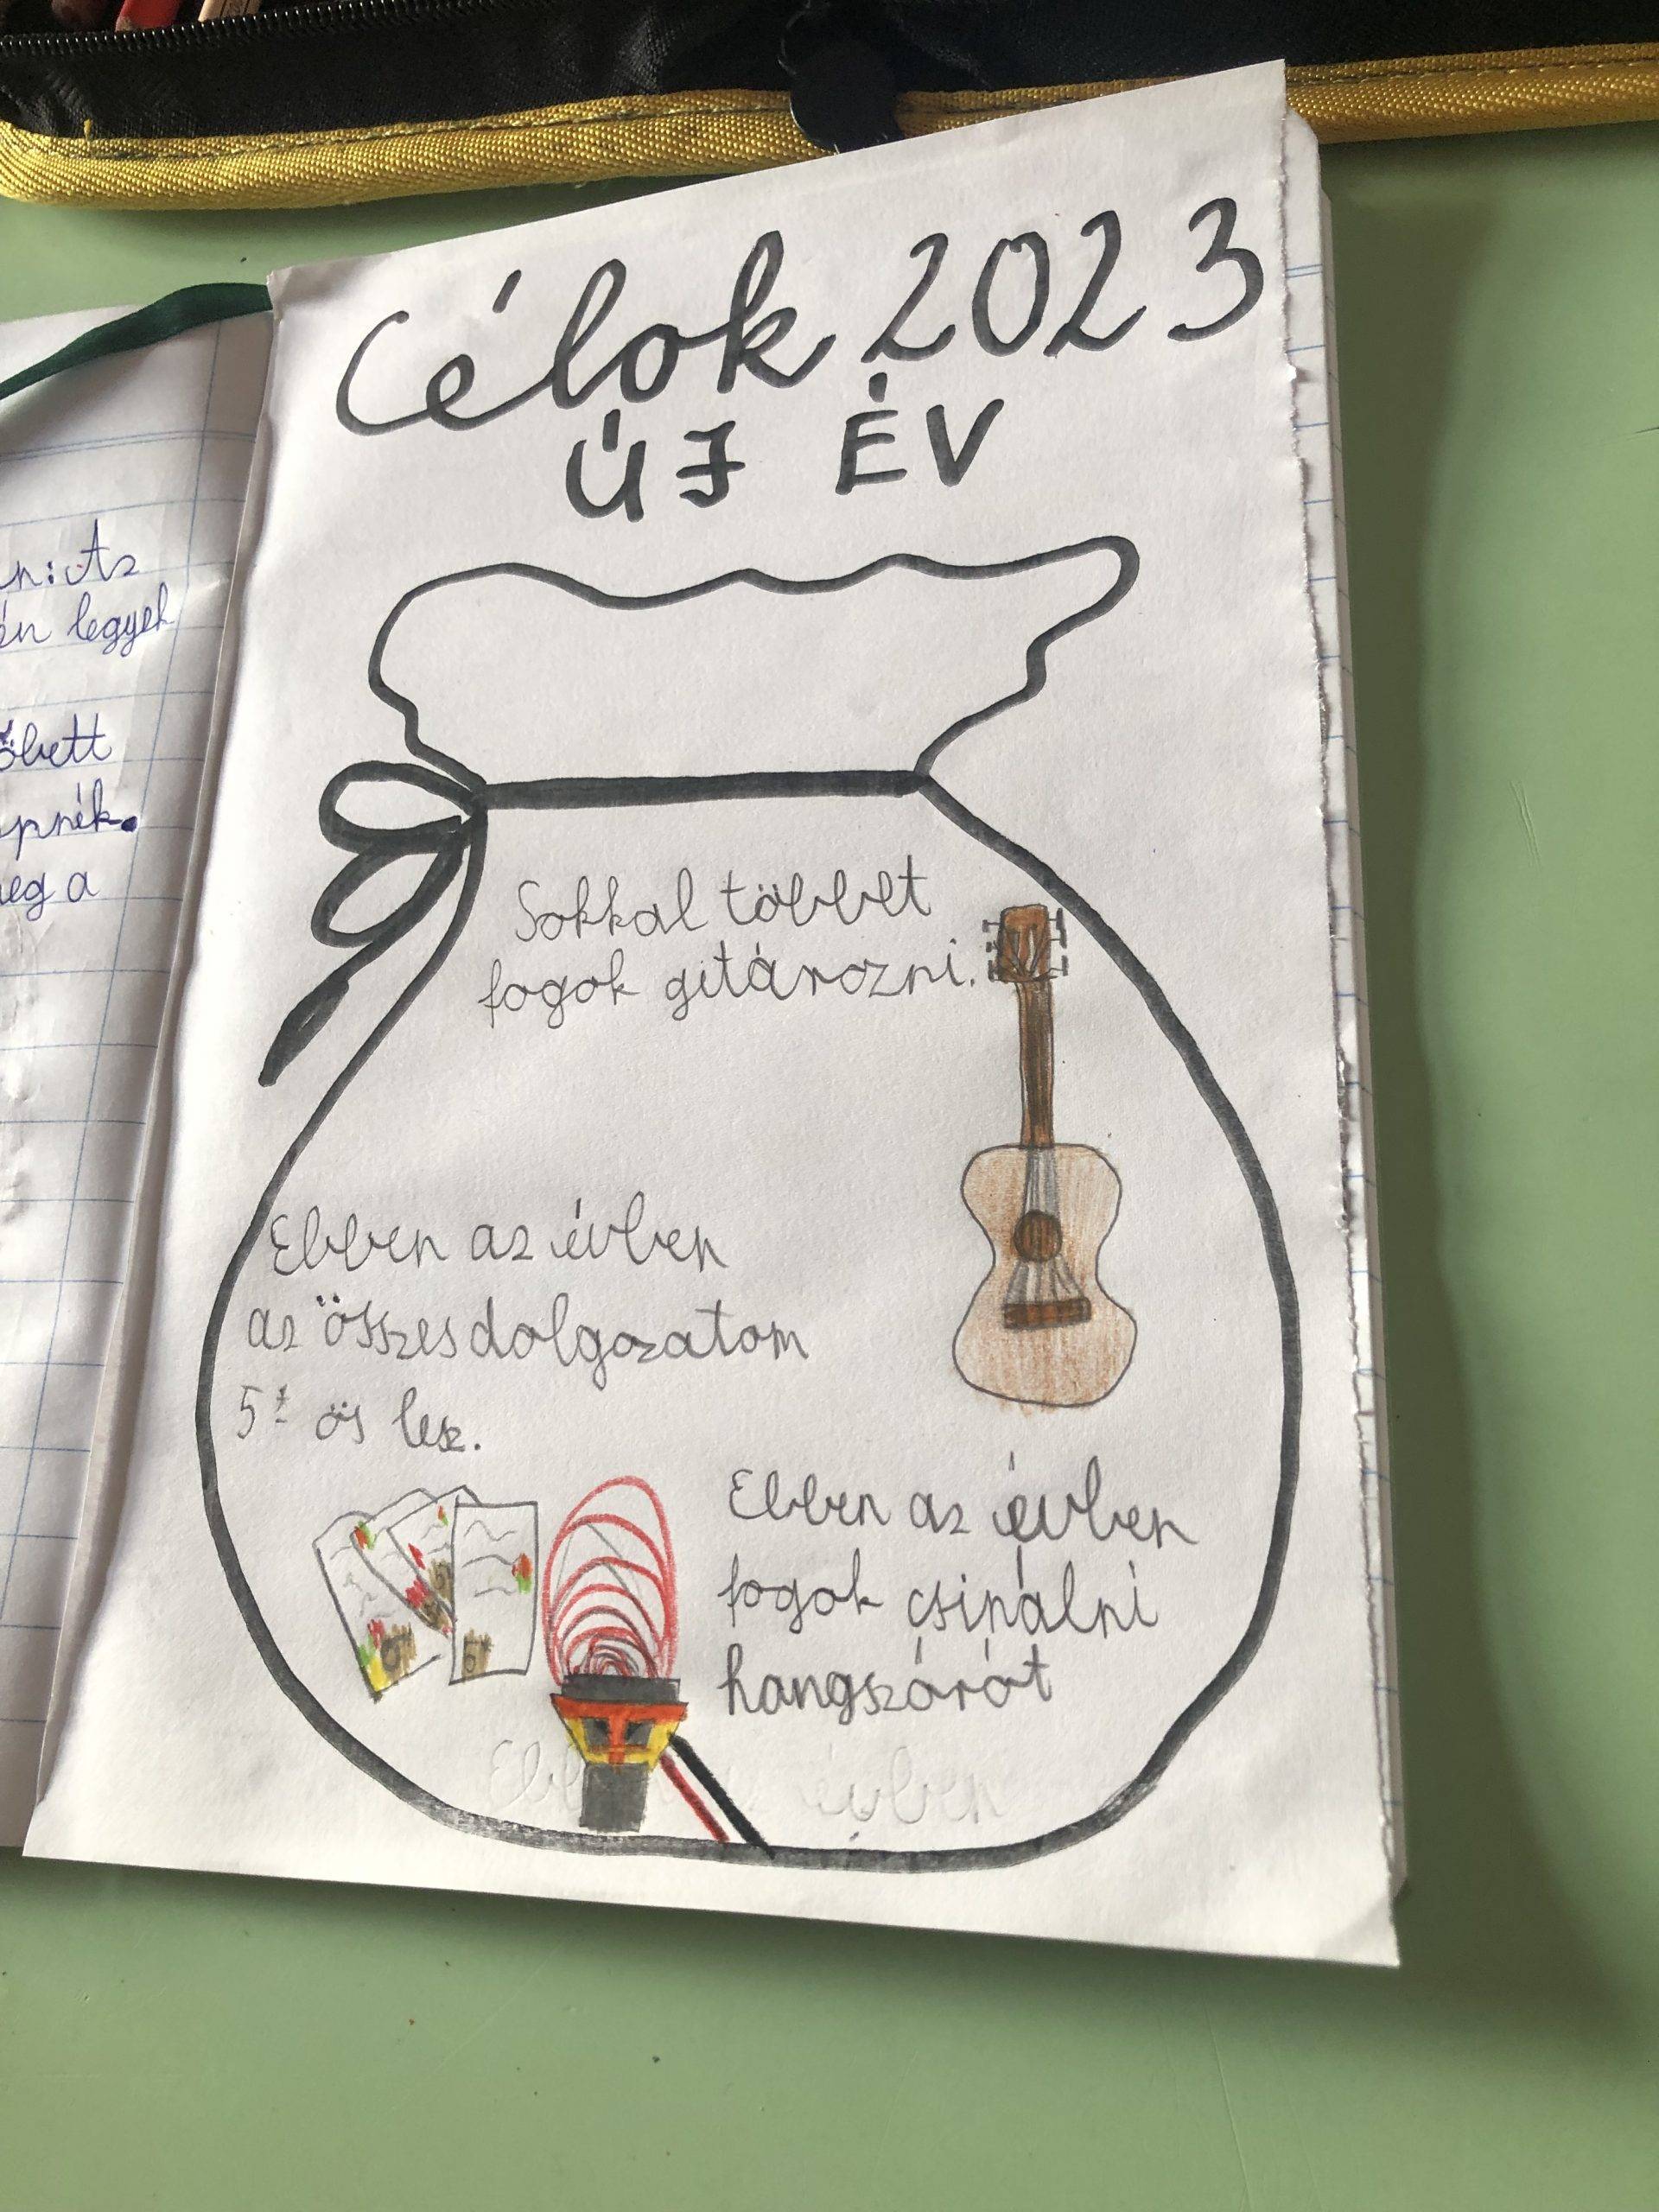 Célok 2023
ÚJ ÉV
Sokkal többet
fogok gitározni.
Ebben az évben
az összes dolgozatom
5* ös lesz.
Ebben az évben
fogok csinálni
hangszórót
évben
n: Az
én legyek
pnék.
eg a
5*
5*